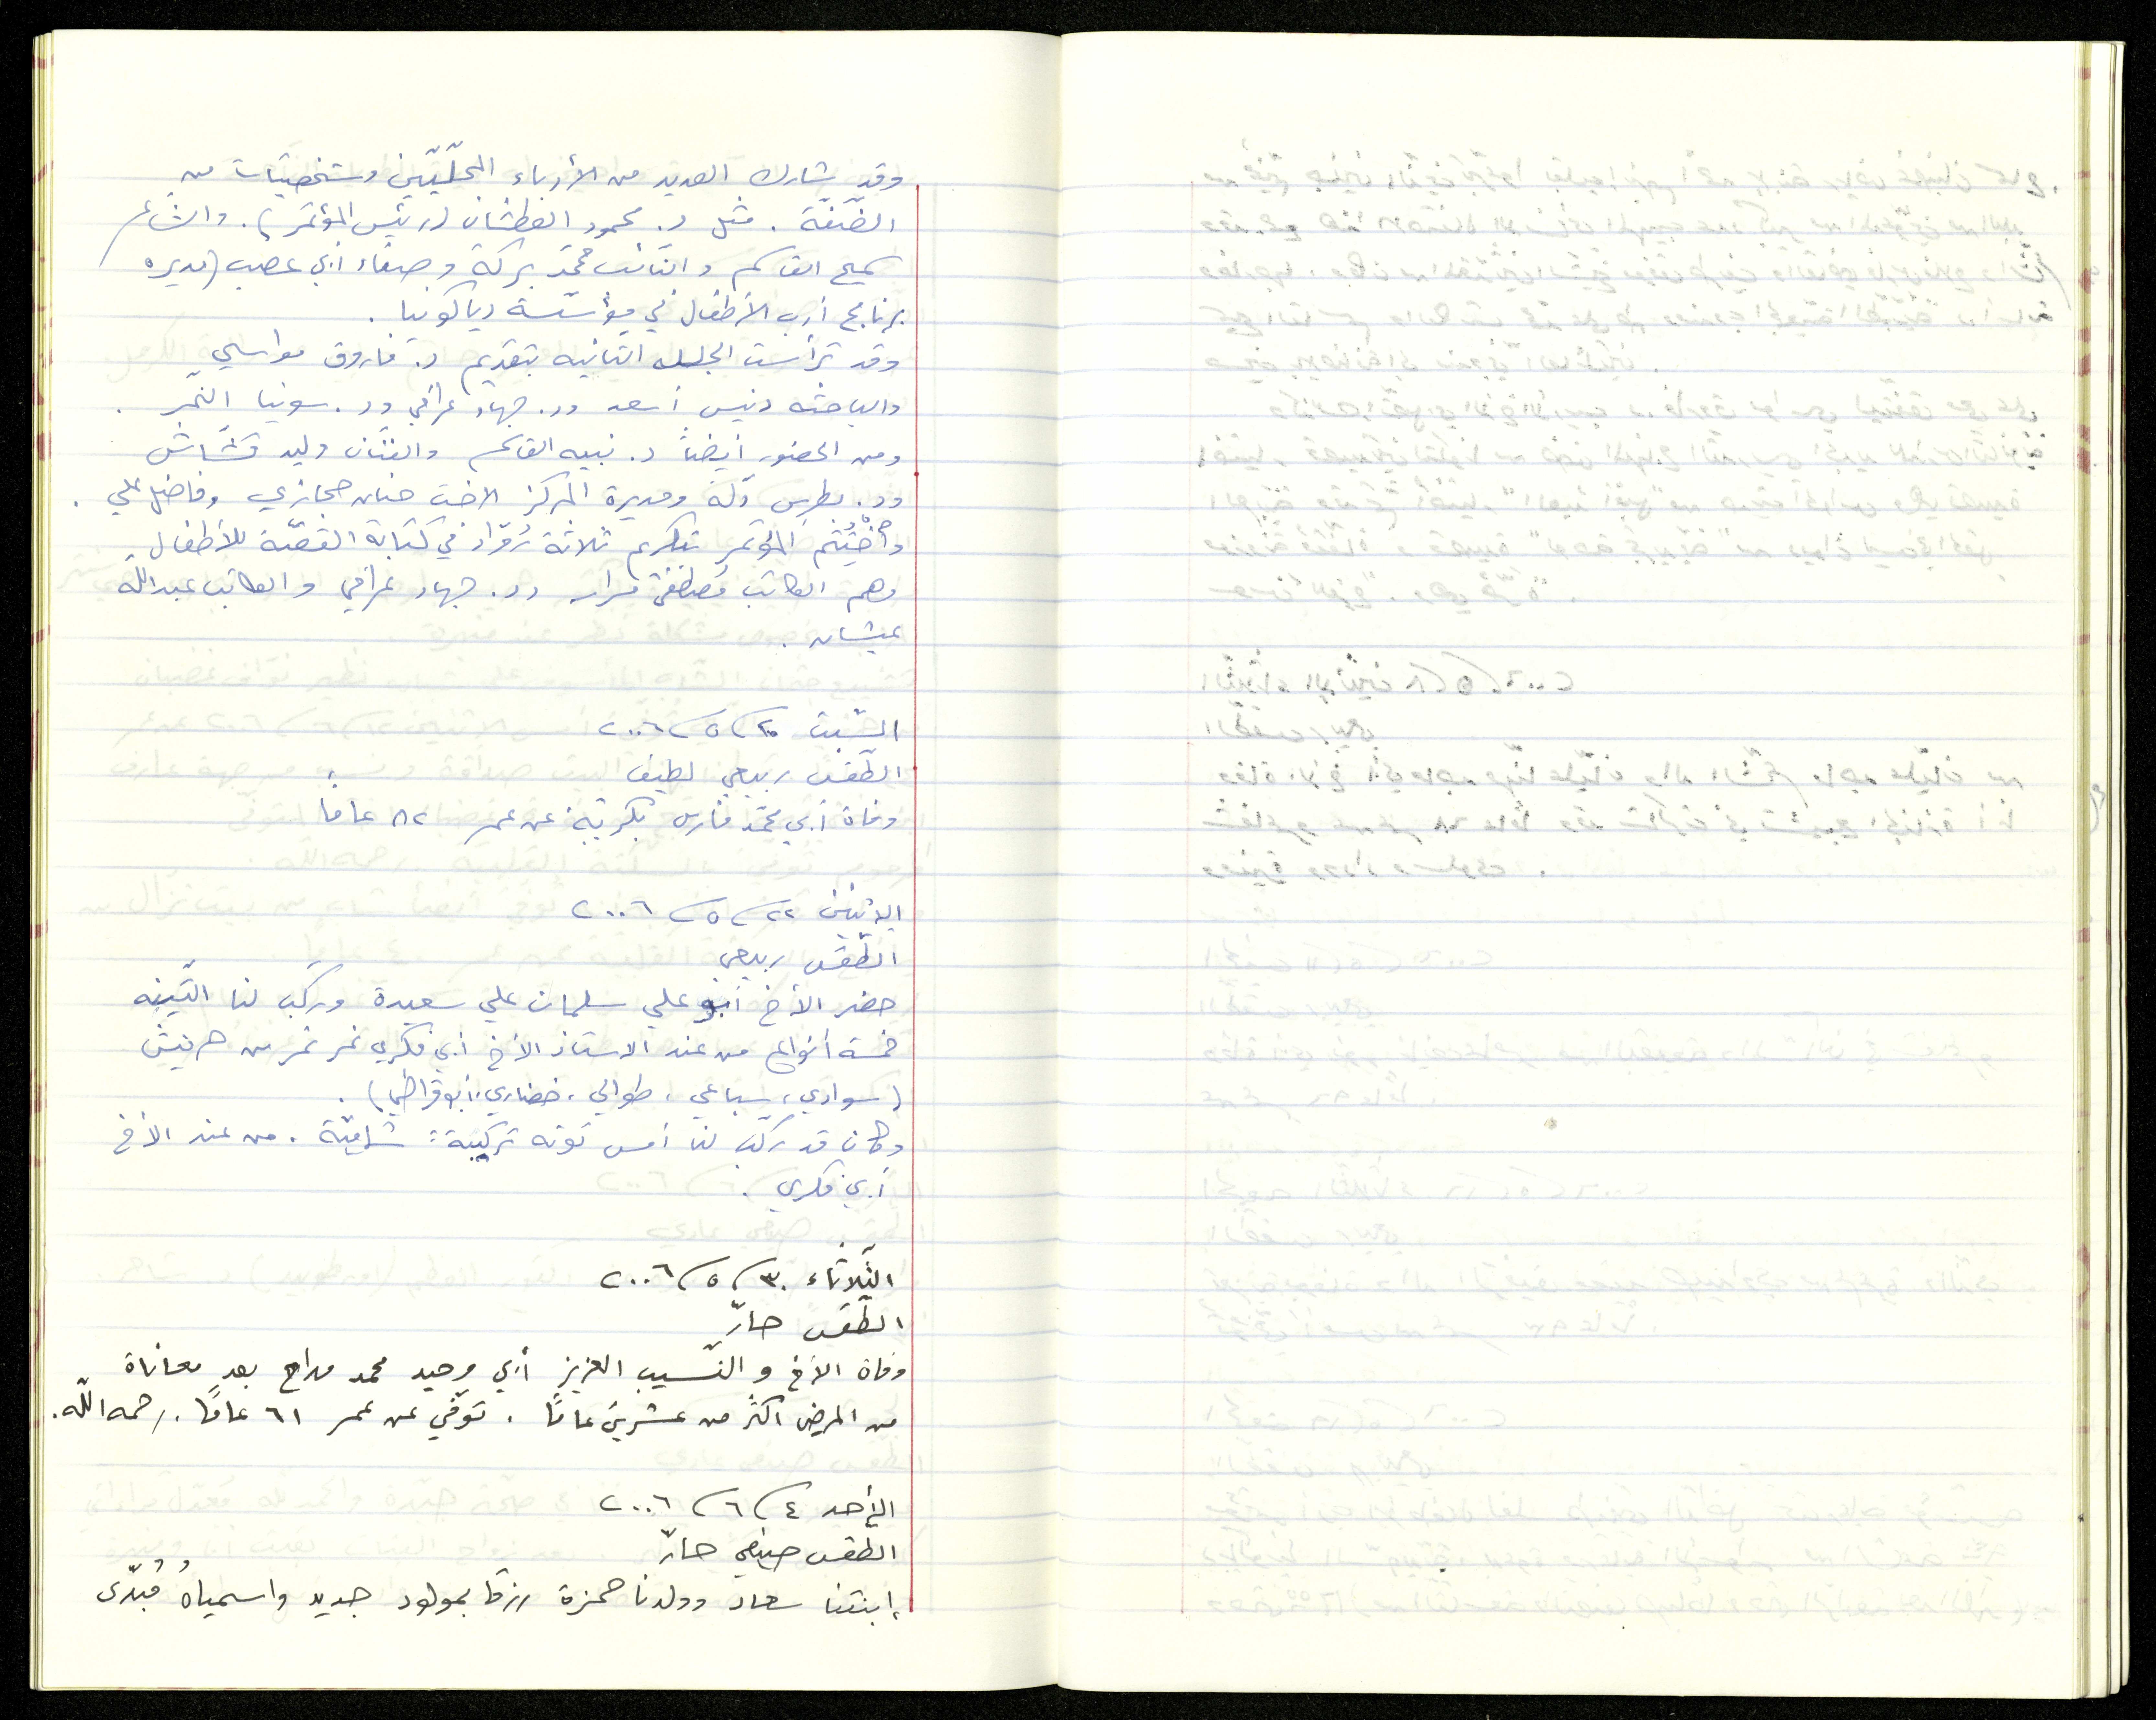 وقد شارك العديد من الأدباء المحلّيّين وشخصيّات من
الضّفّة. مثل د. محمود العطشان (رئيس المؤتمر). والشّاعر
سميح القاسم والنّائب محمّد بركة وصفاء أبي عصب (مديره
برنامج أدب الأطفال في مؤسّسة دياكونيا.
وقد ترأست الجلسه الثانيه بتقديم د. فاروق مواسي
والباحثه دنيس أسعد ود. جهاد عراقي ود. سونيا النّمر.
ومن الحضور أيضاً د. نبيه القاسم والفنّان وليد قشّاش
ود. بطرس دلّة ومديرة المركز الاخت حنان حجازي وفاضل علي.
واُختُتِم المؤتمر بتكريم ثلاثة رُوّاد في كتابة القصّة للأطفال
وهم الكاتب مُصطفى مرار ود. جهاد عراقي والكاتب عبدالله
عيشان.
السّبت ٢٠/٥/٢٠٠٦
الطّقس ربيعي لطيف
وفاة أبي محمّد فارس بكريّة عن عمر ٨٢ عامًا
الإثنين ٢٢/٥/٢٠٠٦
الطّقس ربيعي
حضر الأخ أبو علي سلمان علي سعيدة وركّب لنا التّينه
خمسة أنواع من عند الاستاذ الأخ أبي فكري نمر نمر من حرفيش
(سوادي، سباعي، طوالي، خضاري، أبو قراضي).
وكان قد ركّب لنا أمس توته تركيبة: شاميّة. من عند الأخ
أبي فكري.
الثّلاثاء ٣٠/٥/٢٠٠٦
الطّقس حارّ
وفاة الأخ والنّسيب العزيز أبي وحيد محمد مداح بعد معاناة
من المرض اكثر من عشرين عامًا. توفّي عن عمر ٦١ عامًا. رحمه اللّه.
الأحد ٤/٦/٢٠٠٦
الطقس صيفي حارّ
إبنتنا سعاد وولدنا حمزة رزقا بمولود جديد واسمياهُ مُبدّى